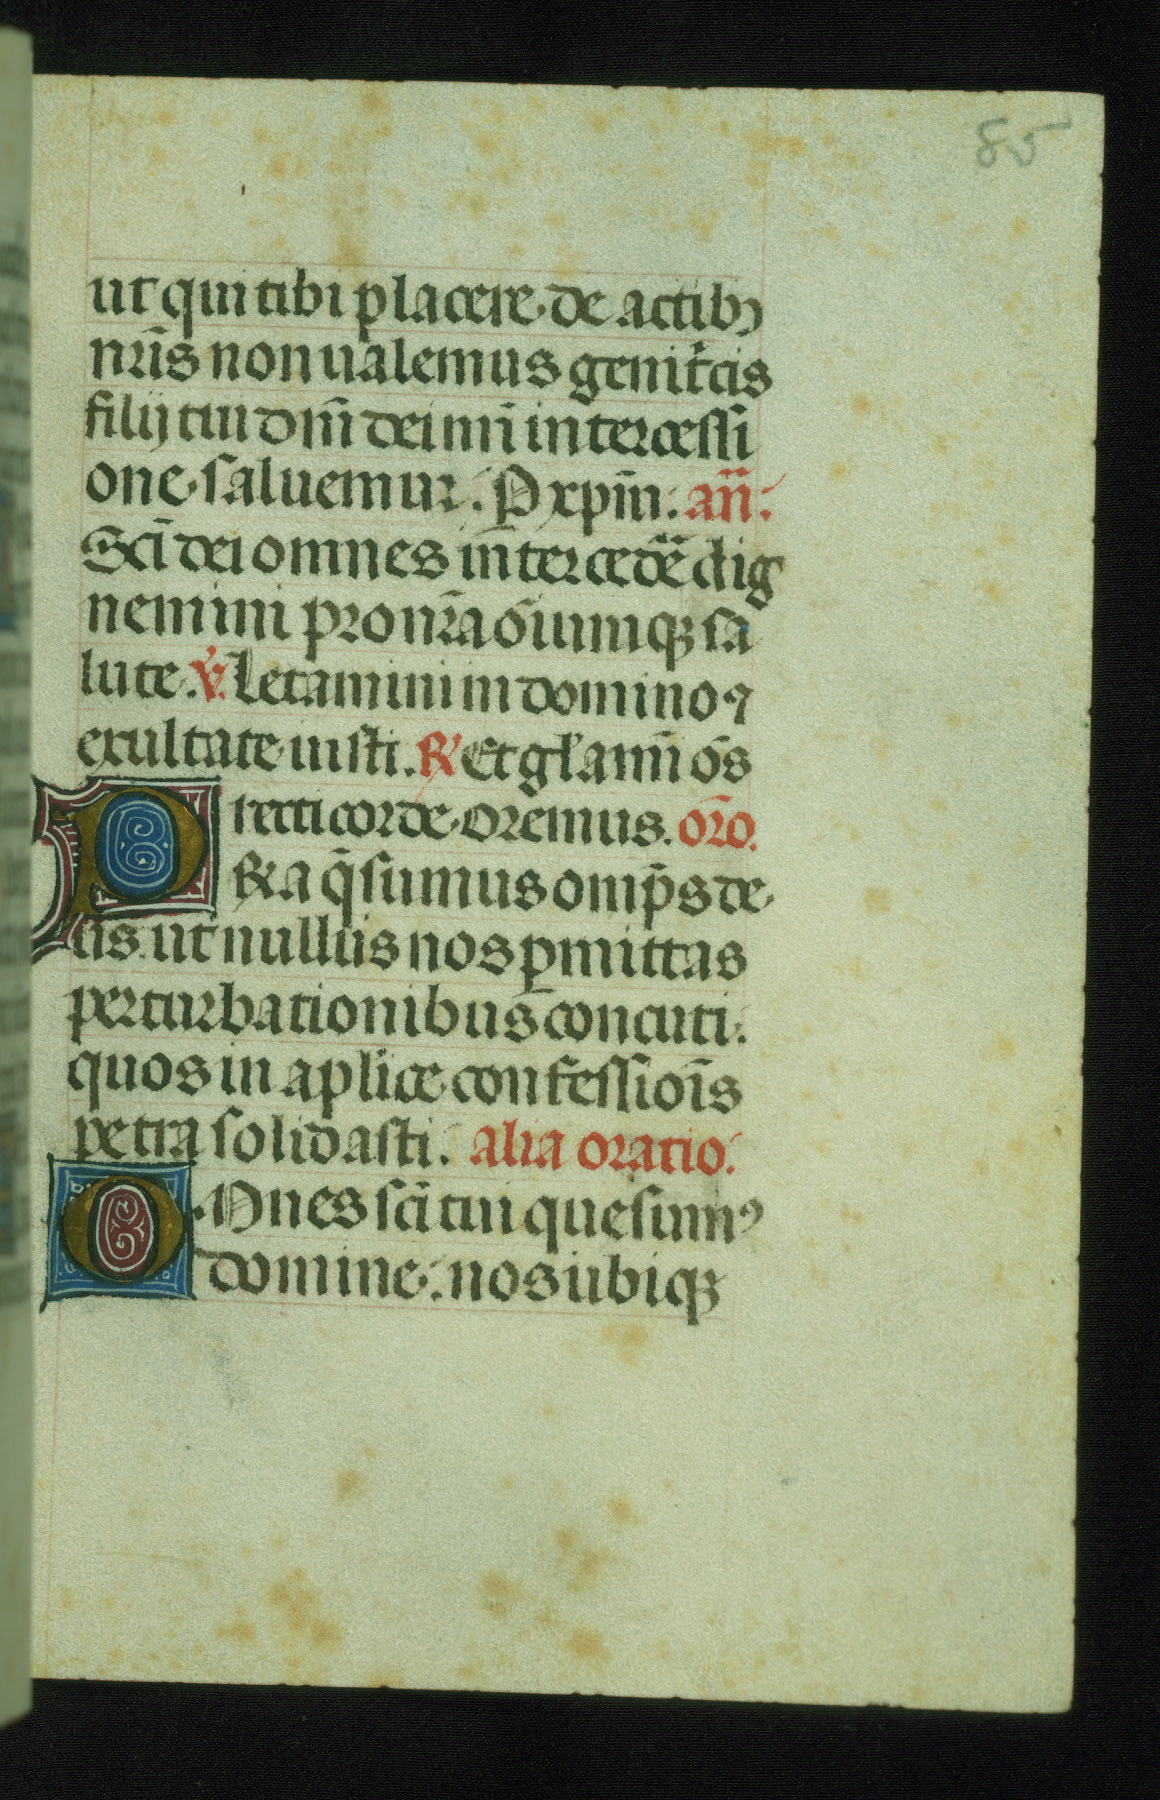 85
ut qui tibi placere de actibꝫ
nr̄is non ualemus genitͥcis
filij tui dn̄i dei nr̄i intercessi
one saluemur. P xp̄m. an̄.
Sc̄i dei omnes intercedẽ dig
nemini pro nr̄a om̄iumqꝫ sa
lute. ℣. Letamini in domino ⁊
exultate iusti. ℟ Et gl̄amī om̄s
recti corde. Oremus. or̄o.
PReta q̄sumus omp̄s de
us. ut nullis nos ꝑmittas
perturbationibus concuti.
quos in aplīce confessiōis
petra solidasti. alia oratio.
OMnes sc̄i tui quesumꝰ
domine. nos ubiqꝫ